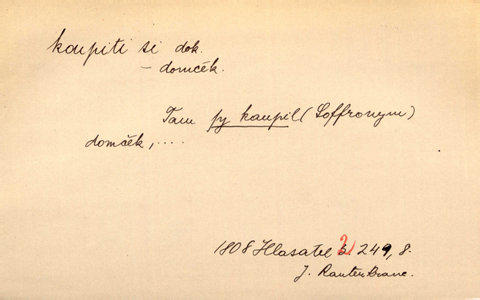 koupiti si dok.
– domček.
Tam sy koupil (Soffronym)
domček, ....
1808 Hlasatel 2/ 249, 8.
J. Rautenkranc.